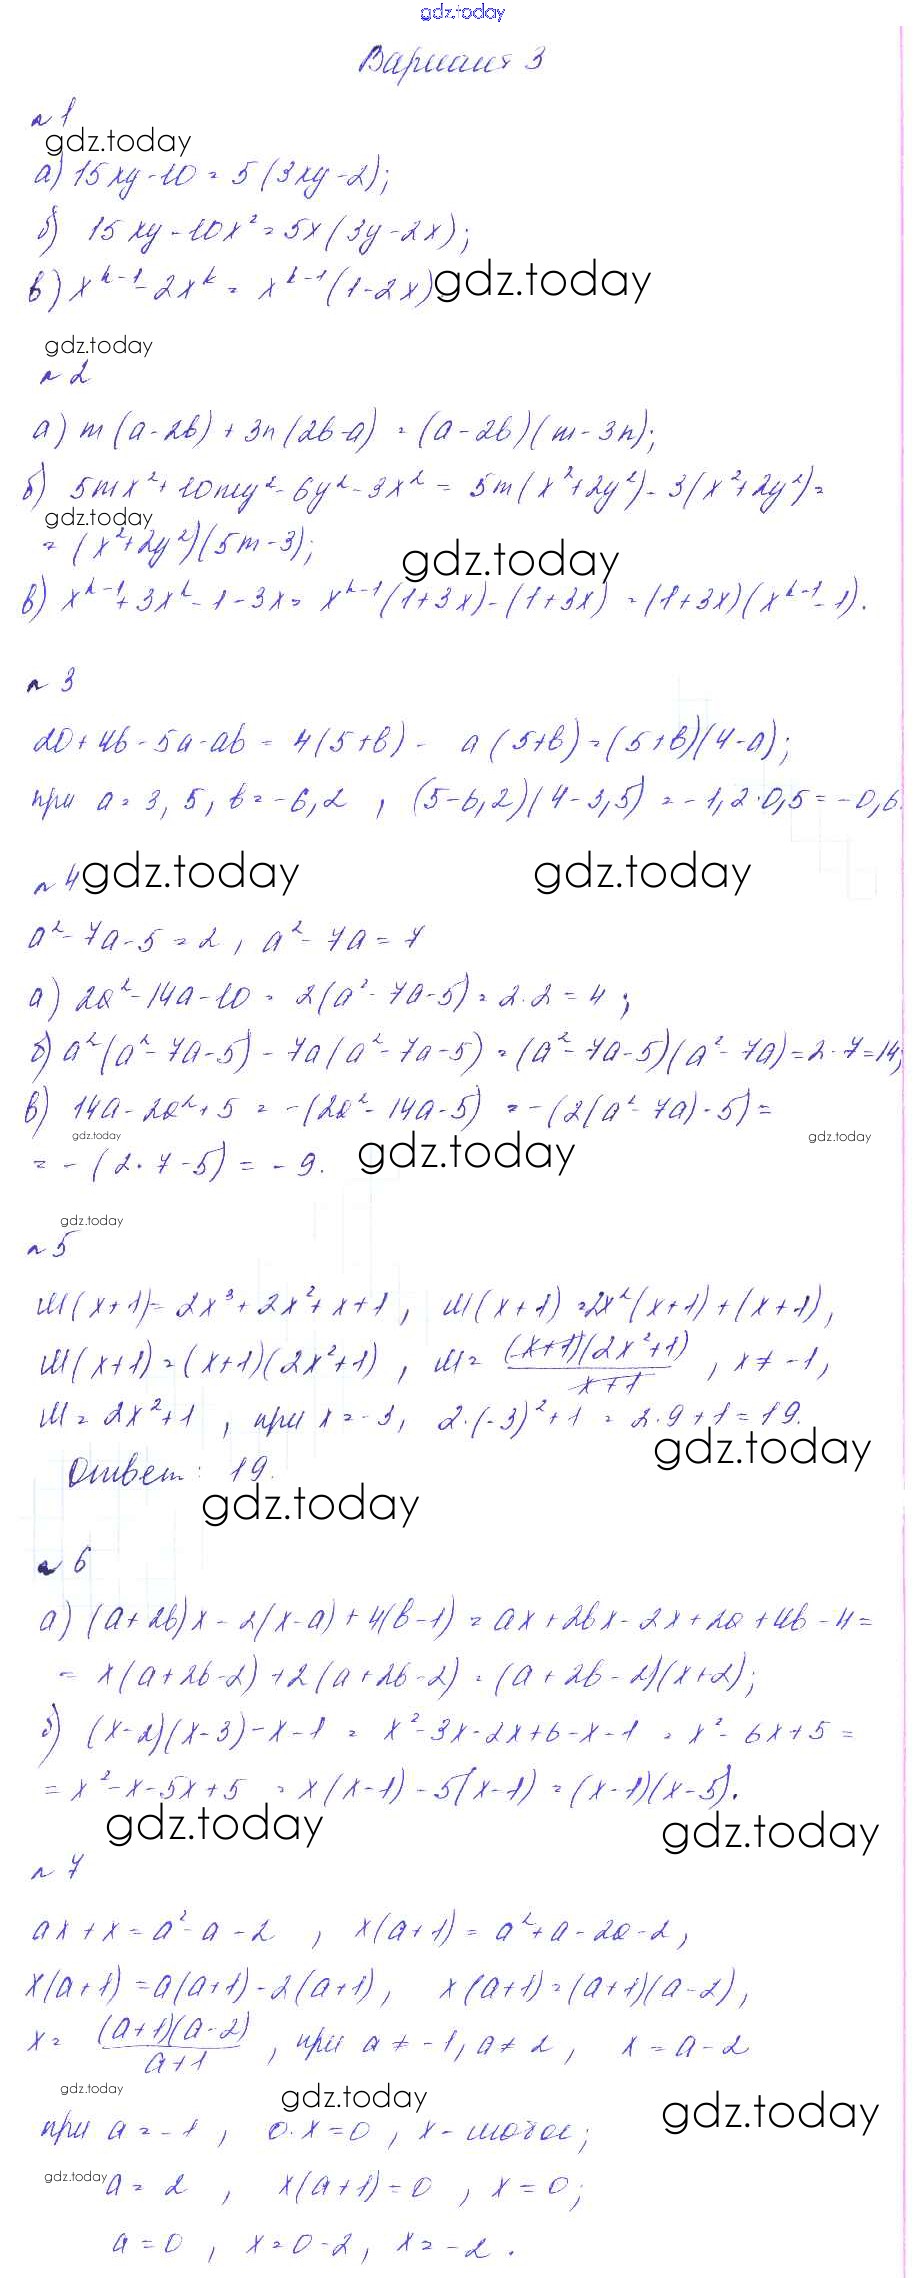 gdz.today
Вариант 3
№ 1
gdz.today
а) 15xy - 10 = 5(3xy - 2);
б) 15xy - 10x² = 5x(3y - 2x);
в) xᵏ⁻¹ - 2xᵏ = xᵏ⁻¹(1 - 2x) gdz.today
gdz.today
№ 2
а) m(a - 2b) + 3n(2b - a) = (a - 2b)(m - 3n);
б) 5mx² + 10my² - 6y² - 3x² = 5m(x² + 2y²) - 3(x² + 2y²) =
gdz.today
= (x² + 2y²)(5m - 3);
gdz.today
в) xᵏ⁻¹ + 3xᵏ - 1 - 3x = xᵏ⁻¹(1 + 3x) - (1 + 3x) = (1 + 3x)(xᵏ⁻¹ - 1).
№ 3
20 + 4b - 5a - ab = 4(5 + b) - a(5 + b) = (5 + b)(4 - a);
при a = 3,5, b = -6,2, (5 - 6,2)(4 - 3,5) = -1,2 · 0,5 = -0,6.
№ 4 gdz.today gdz.today
a² - 7a - 5 = 2, a² - 7a = 7
а) 2a² - 14a - 10 = 2(a² - 7a - 5) = 2 · 2 = 4;
б) a²(a² - 7a - 5) - 7a(a² - 7a - 5) = (a² - 7a - 5)(a² - 7a) = 2 · 7 = 14;
в) 14a - 2a² + 5 = -(2a² - 14a - 5) = -(2(a² - 7a) - 5) =
gdz.today gdz.today
= -(2 · 7 - 5) = -9. gdz.today
gdz.today
№ 5
M(x + 1) = 2x³ + 2x² + x + 1, M(x + 1) = 2x²(x + 1) + (x + 1),
M(x + 1) = (x + 1)(2x² + 1), M = (x + 1)(2x² + 1) / x + 1, x ≠ -1,
M = 2x² + 1, при x = -3, 2 · (-3)² + 1 = 2 · 9 + 1 = 19.
gdz.today
Ответ: 19.
gdz.today
№ 6
а) (a + 2b)x - 2(x - a) + 4(b - 1) = ax + 2bx - 2x + 2a + 4b - 4 =
= x(a + 2b - 2) + 2(a + 2b - 2) = (a + 2b - 2)(x + 2);
б) (x - 2)(x - 3) - x - 1 = x² - 3x - 2x + 6 - x - 1 = x² - 6x + 5 =
= x² - x - 5x + 5 = x(x - 1) - 5(x - 1) = (x - 1)(x - 5).
gdz.today gdz.today
№ 7
ax + x = a² - a - 2, x(a + 1) = a² + a - 2a - 2,
x(a + 1) = a(a + 1) - 2(a + 1), x(a + 1) = (a + 1)(a - 2),
x = (a + 1)(a - 2) / a + 1, при a ≠ -1, a ≠ 2, x = a - 2
gdz.today gdz.today gdz.today
при a = -1, 0 · x = 0, x - любое;
gdz.today
a = 2, x(a + 1) = 0, x = 0;
a = 0, x = 0 - 2, x = -2.